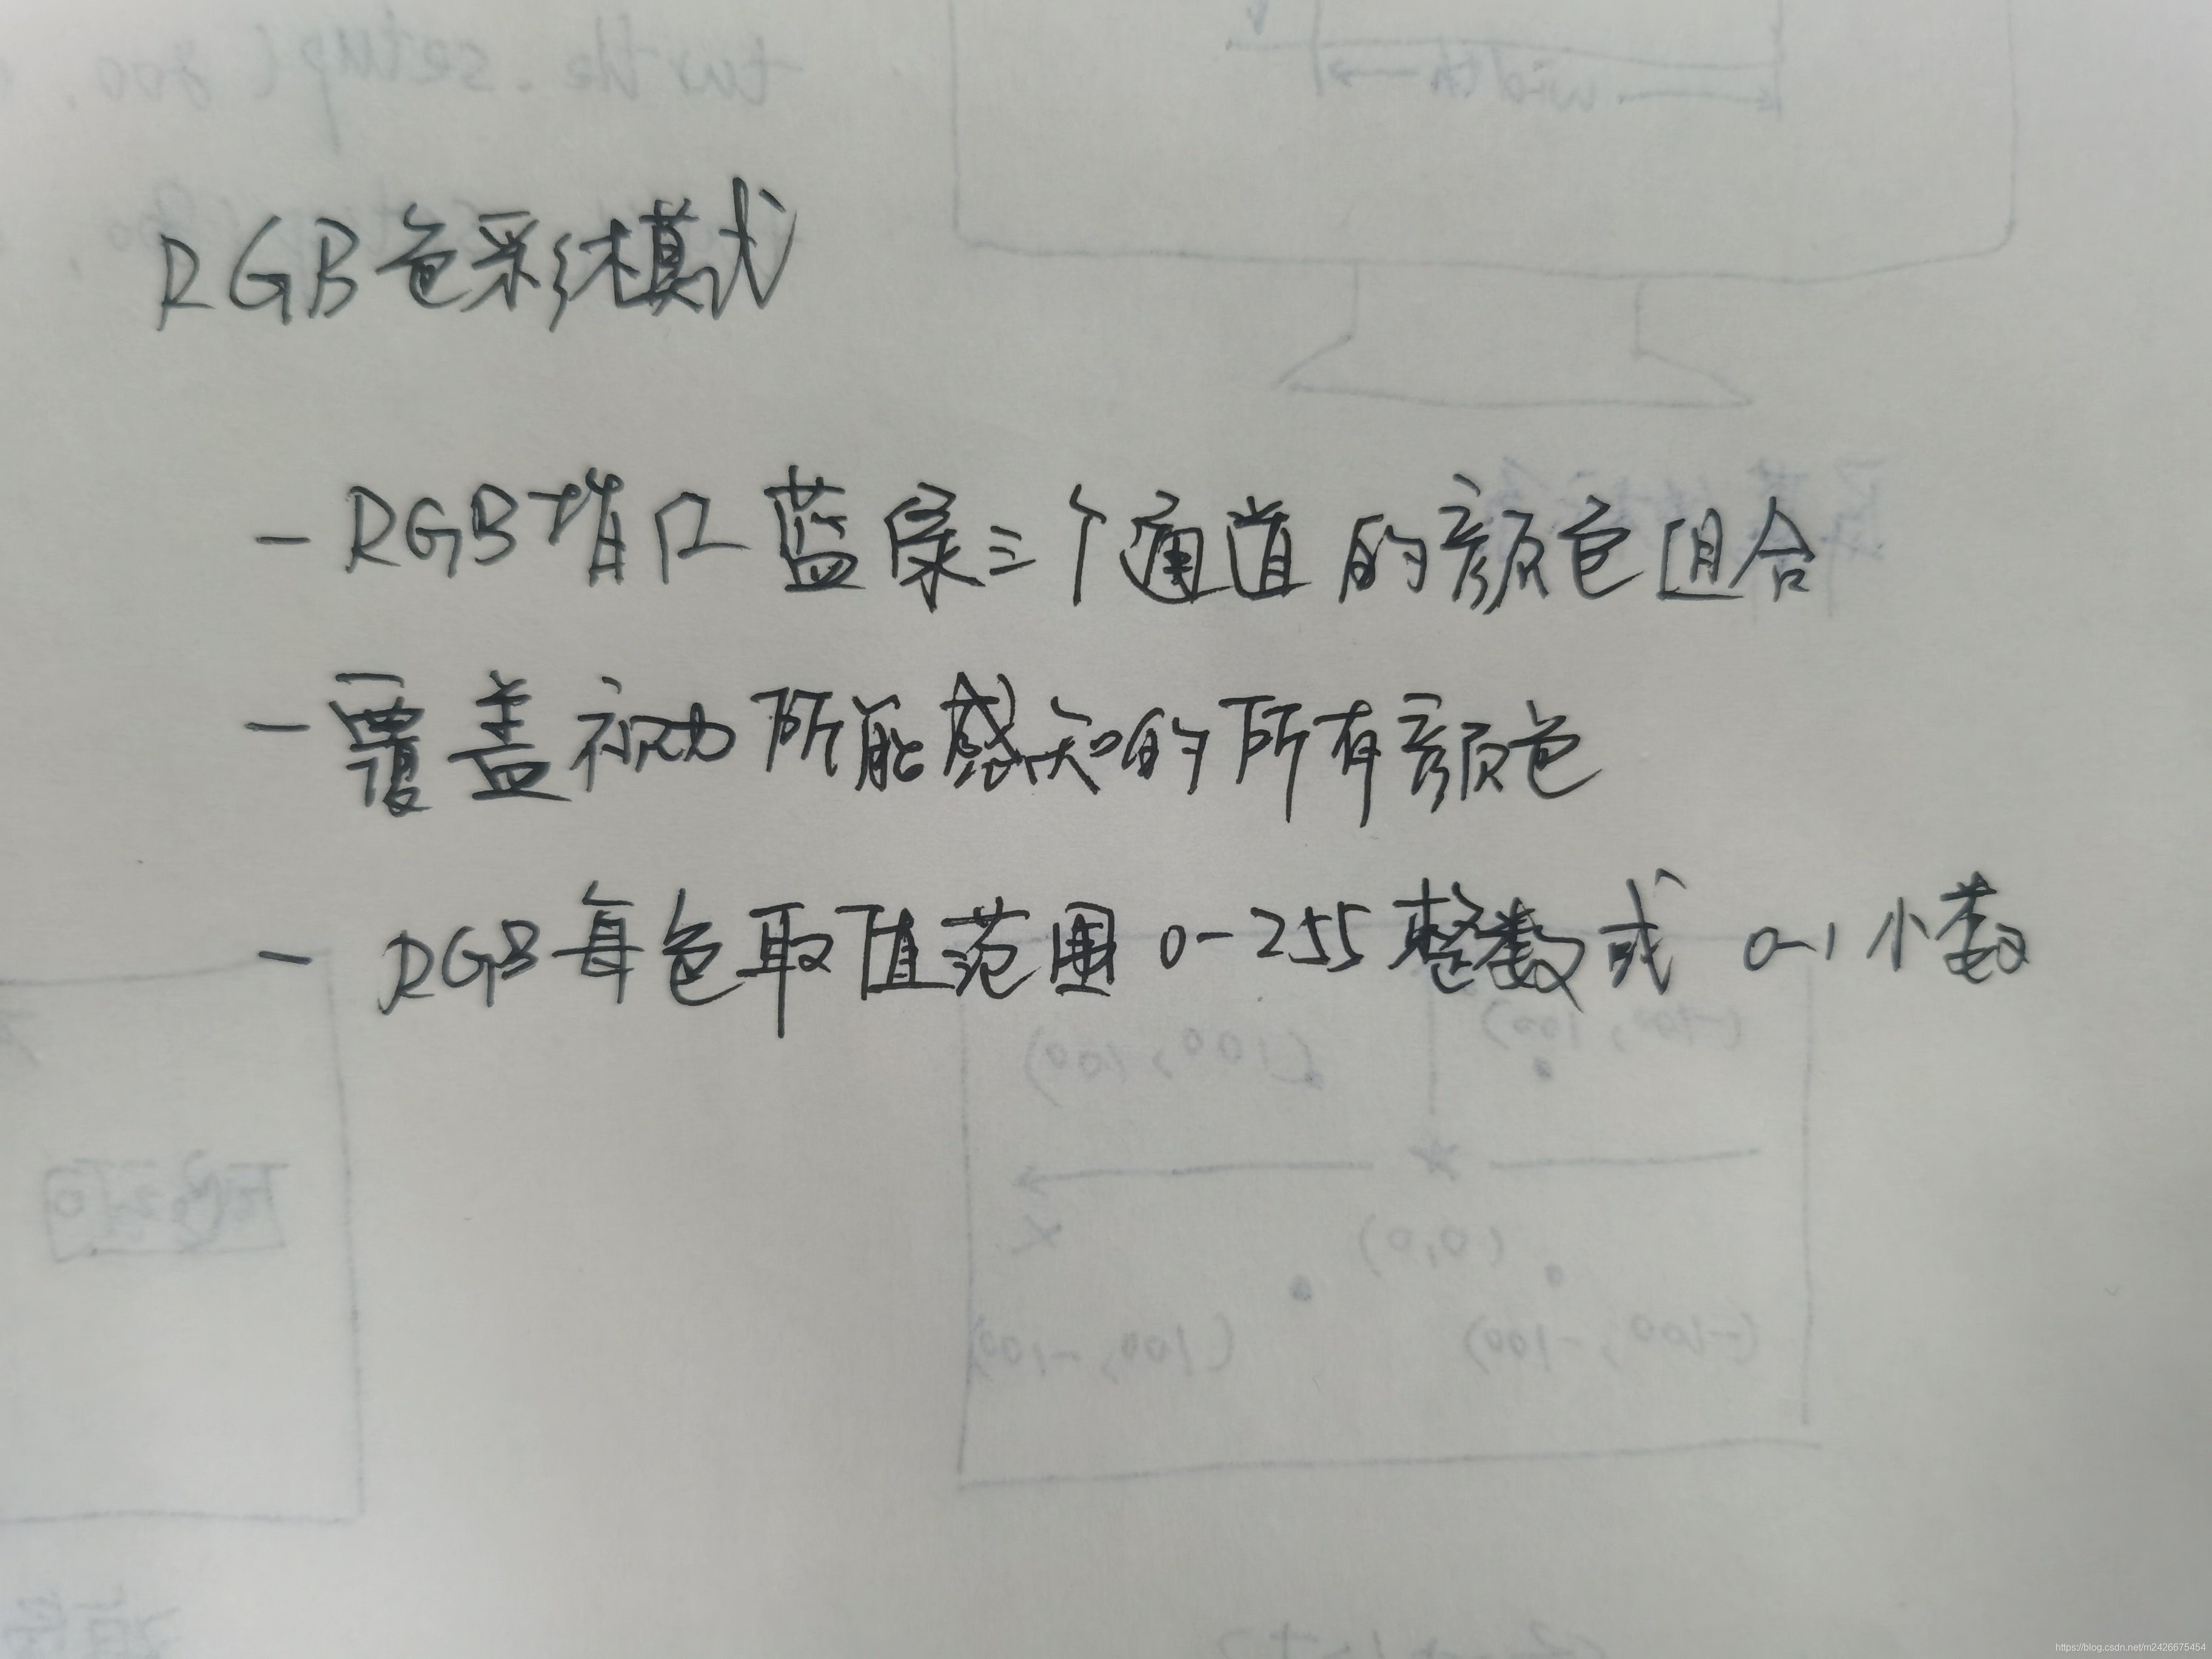 RGB色彩模式
- RGB指红蓝绿三个通道的颜色组合
- 覆盖视力所能感知的所有颜色
- RGB每色取值范围 0-255 整数或 0-1 小数
https://blog.csdn.net/m2426675454